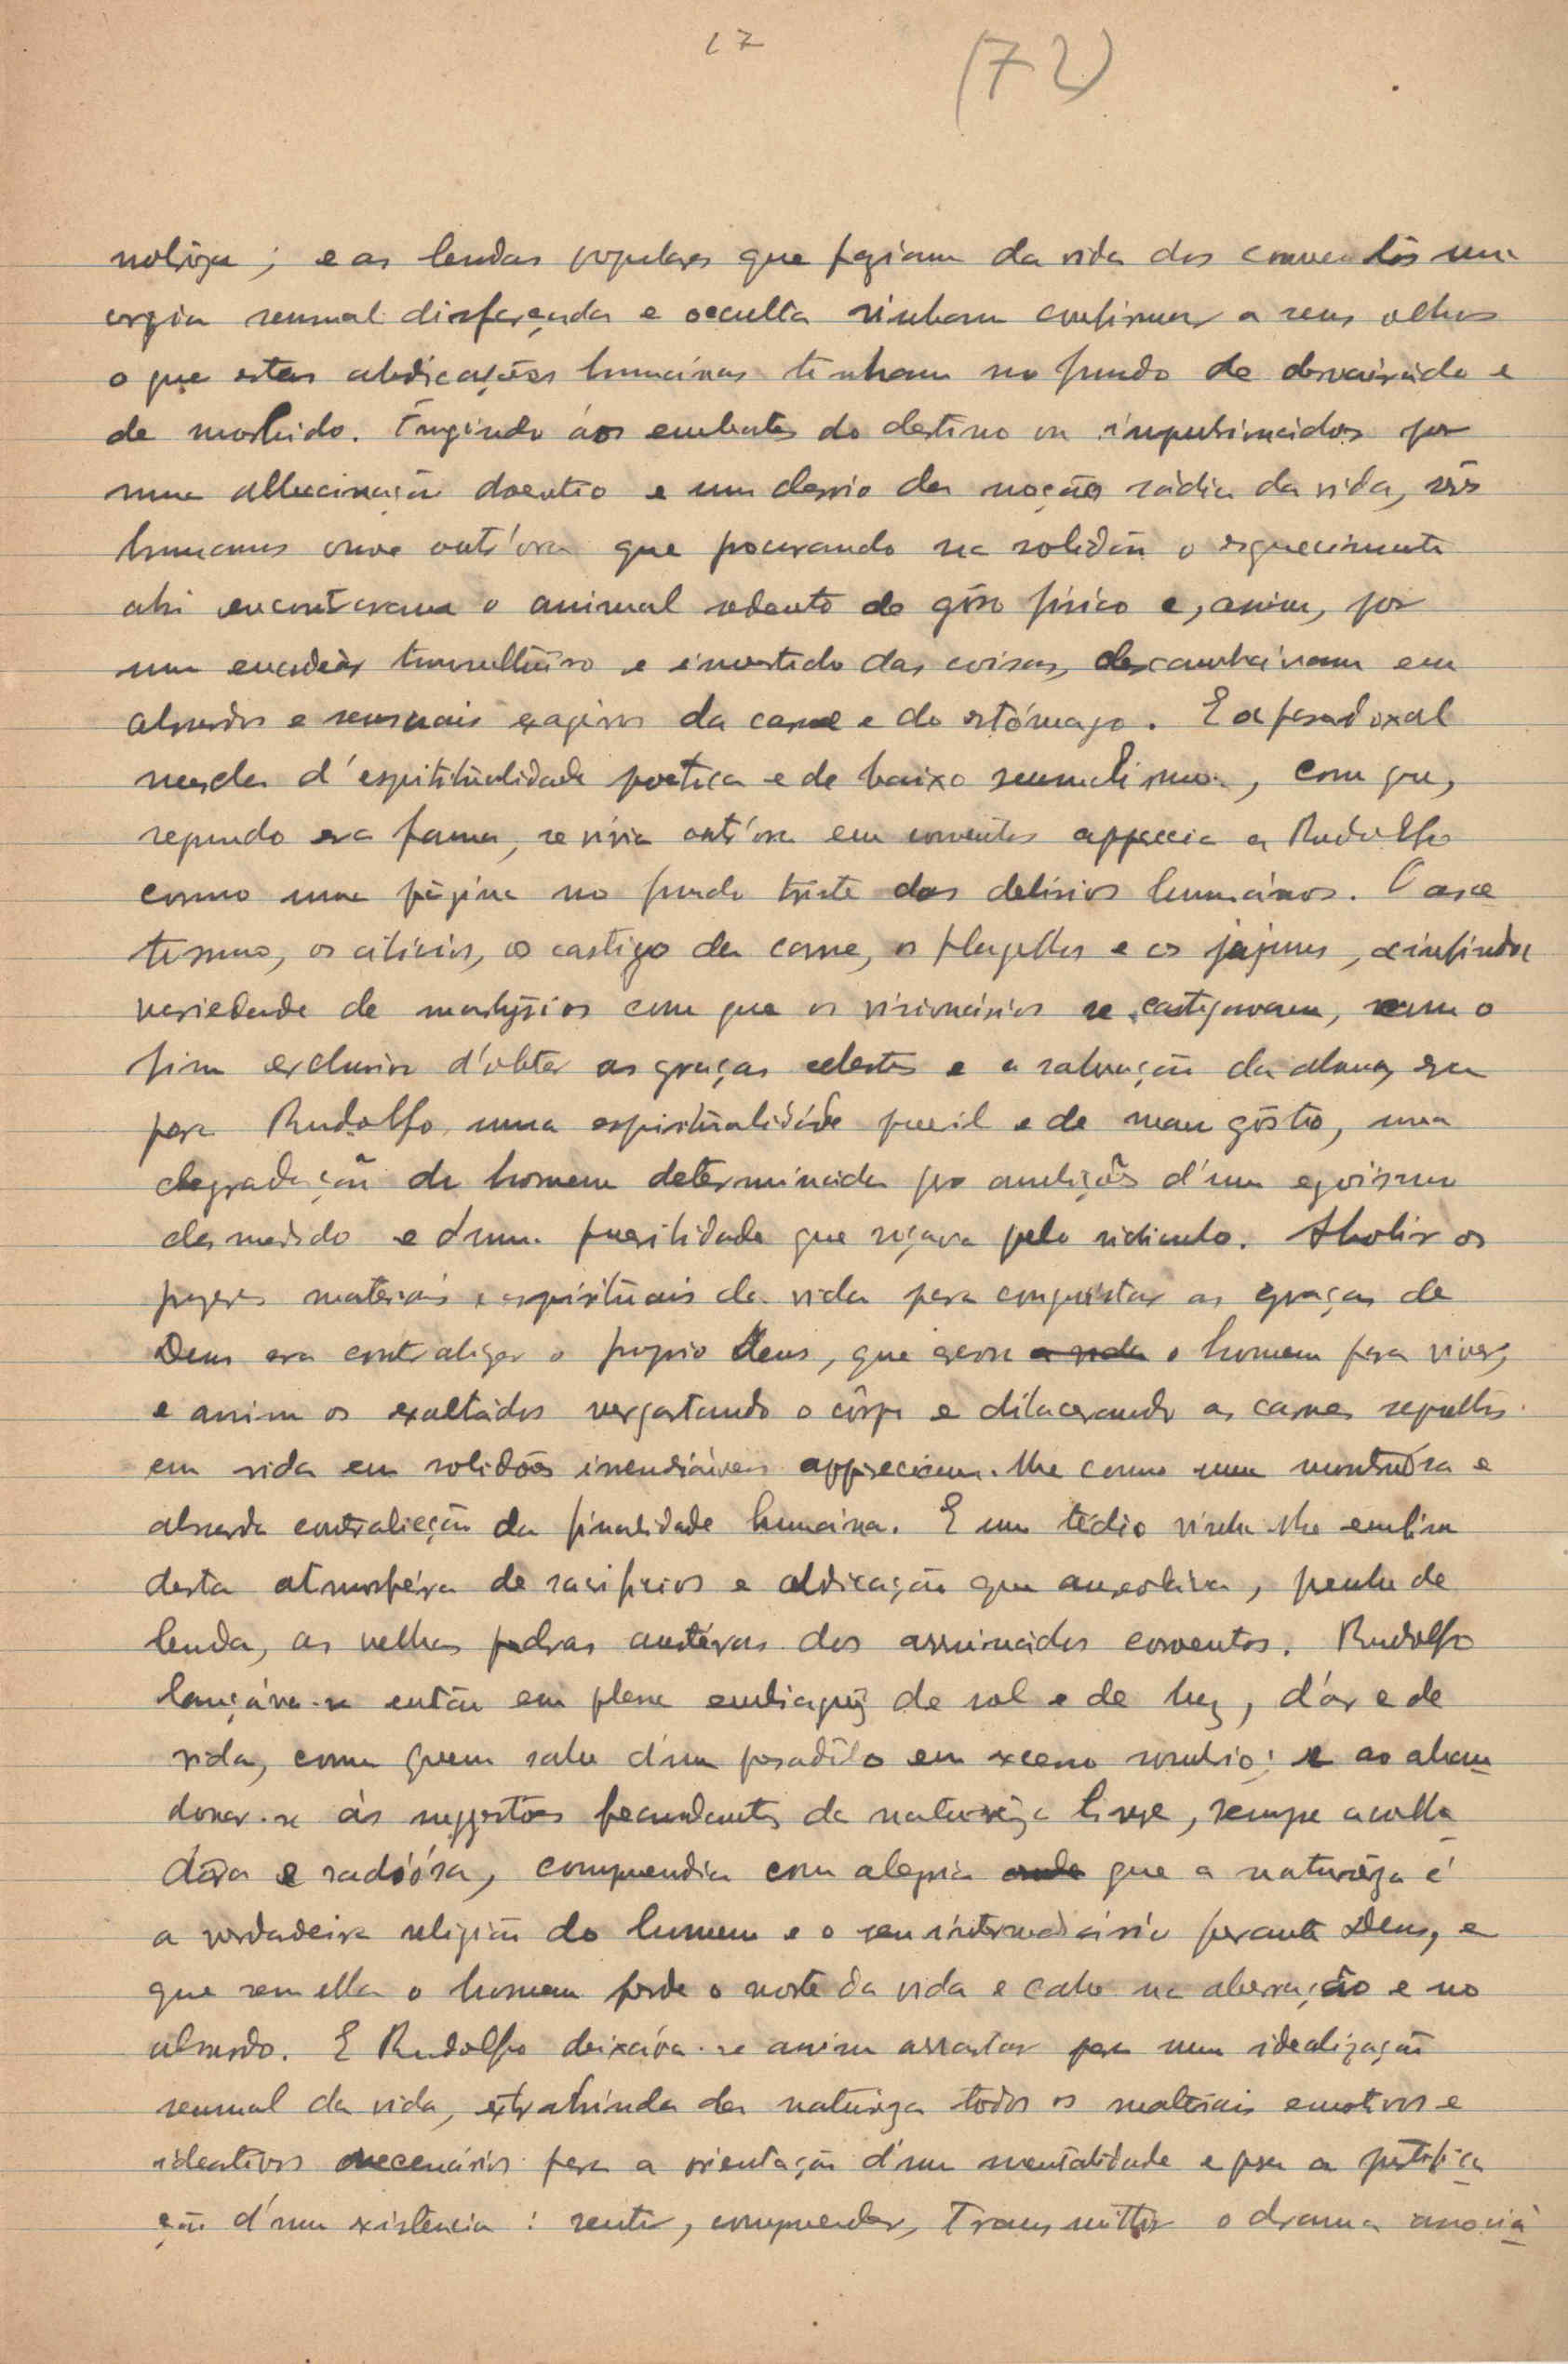 17 (72)
; e as lendas populares que faziam da vida dos conventos uma
orgia sensual disfarçada e occulta vinham confirmar a seus olhos
o que estas abdicações humánas tinham no fundo de desvairádo e
de morbido. Fugindo áos embates do destino ou impulsionádos por
uma allucinação doentia e um desvio da noção sádia da vida, sêres
humanos houve outr'ora que procurando na solidão o esquecimento
ahi encontraram o animal sedento de gôso fisico e, assim, por
um encadeàr tumultuôso e invertido das coisas, descambávam em
absurdos e sensuais exageros da carne e do estómago. E a paradoxal
mescla d'espiritualidade poetica e de baixo sensualismo, com que,
segundo era fama, se vivia outr'ora em conventos apparecia a Rudolfo
como uma página no fundo triste dos delirios humános. O asce
tismo, os cilicios, o castigo da carne, os flagellos e os jejuns, a infinda
variedade de martyrios com que os visionários se castigavam, com o
fim exclusivo d'obter as graças celestes e a salvação da alma, era
para Rudolfo uma espiritualidáde pueril e de mau gôsto, uma
degradação do homem determináda por ambições d'um egoismo
desmedido e d'uma puerilidade que roçava pelo ridiculo. Abolir os
prazeres materiais e espirituais da vida para conquistar as graças de
Deus era contradizer o proprio Deus, que gerou a vida o homem para viver,
e assim os exaltádos vergastando o côrpo e dilacerando as carnes sepultos
em vida em solidões appareciam-lhe como uma monstruósa e
absurda contradicção da finalidade humána. E um tédio vinha-lhe emfim
desta atmosféra de sacrificios e abdicação que aureolava, penhe de
lenda, as velhas pedras austéras dos arruinádos conventos. Rudolfo
lançáva-se então em plena embriaguêz de sol e de luz, d'ár e de
vida, como quem sahe d'um pesadêlo em excesso sombrio; e ao aban
donar-se ás suggestões fecundantes da naturêza livre, sempre acolhe
dôra e radiósa, comprendia com alegria onde que a naturêza é
a verdadeira religião do homem e o seu intermediário perante Deus, e
que sem ella o homem perde o norte da vida e cahe na aberração e no
absurdo. E Rudolfo deixáva-se assim arrastar para uma idealização
sensual da vida, extrahindo da naturêza todos os materiais emotivos e
ideativos necessários para a orientação d'uma mentalidade e para a justifica
ção d'uma existencia: sentir, comprender, transmittir o drama